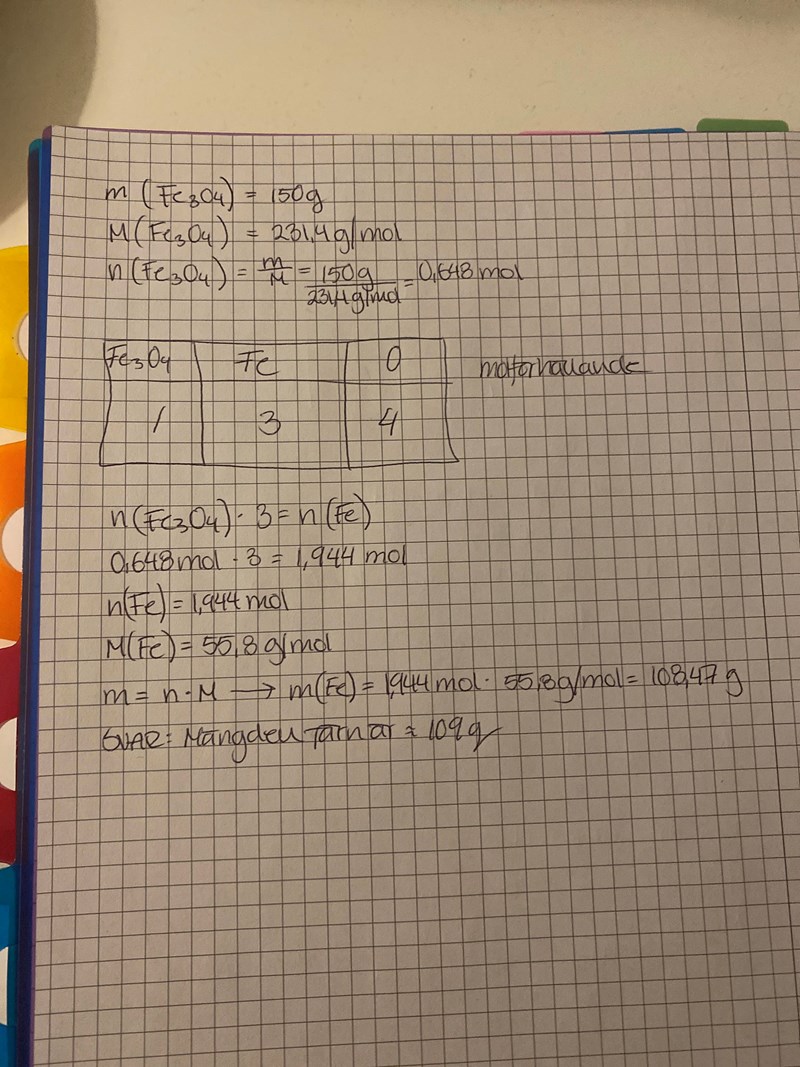 m (Fe₃O₄) = 150g
M(Fe₃O₄) = 231,4g/mol
n(Fe₃O₄) = m/M = 150g/231,4g/mol = 0,648mol
Fe₃O₄ Fe O molförhållande
1 3 4
n(Fe₃O₄) · 3 = n(Fe)
0,648mol · 3 = 1,944mol
n(Fe) = 1,944mol
M(Fe) = 55,8g/mol
m = n·M → m(Fe) = 1,944mol · 55,8g/mol = 108,47g
SVAR: Mängden järn är ≈ 109g